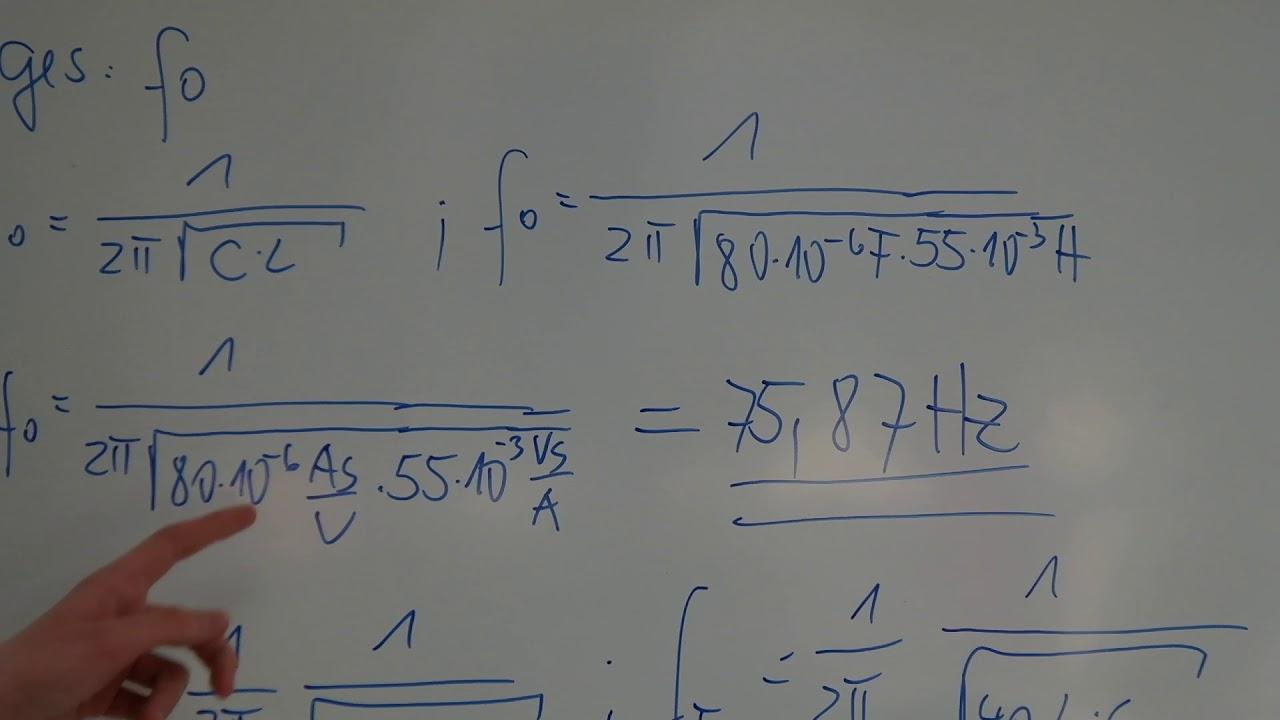 Ges: f0
0 = 1 / 2π √(C·L) ; f0 = 1 / 2π √(80·10⁻⁶F·55·10⁻³H)
f0 = 1 / 2π √(80·10⁻⁶ As/V · 55·10⁻³ Vs/A) = 75,87 Hz
1 / 2π 1 / √ ; f = 1 / 2π 1 / √